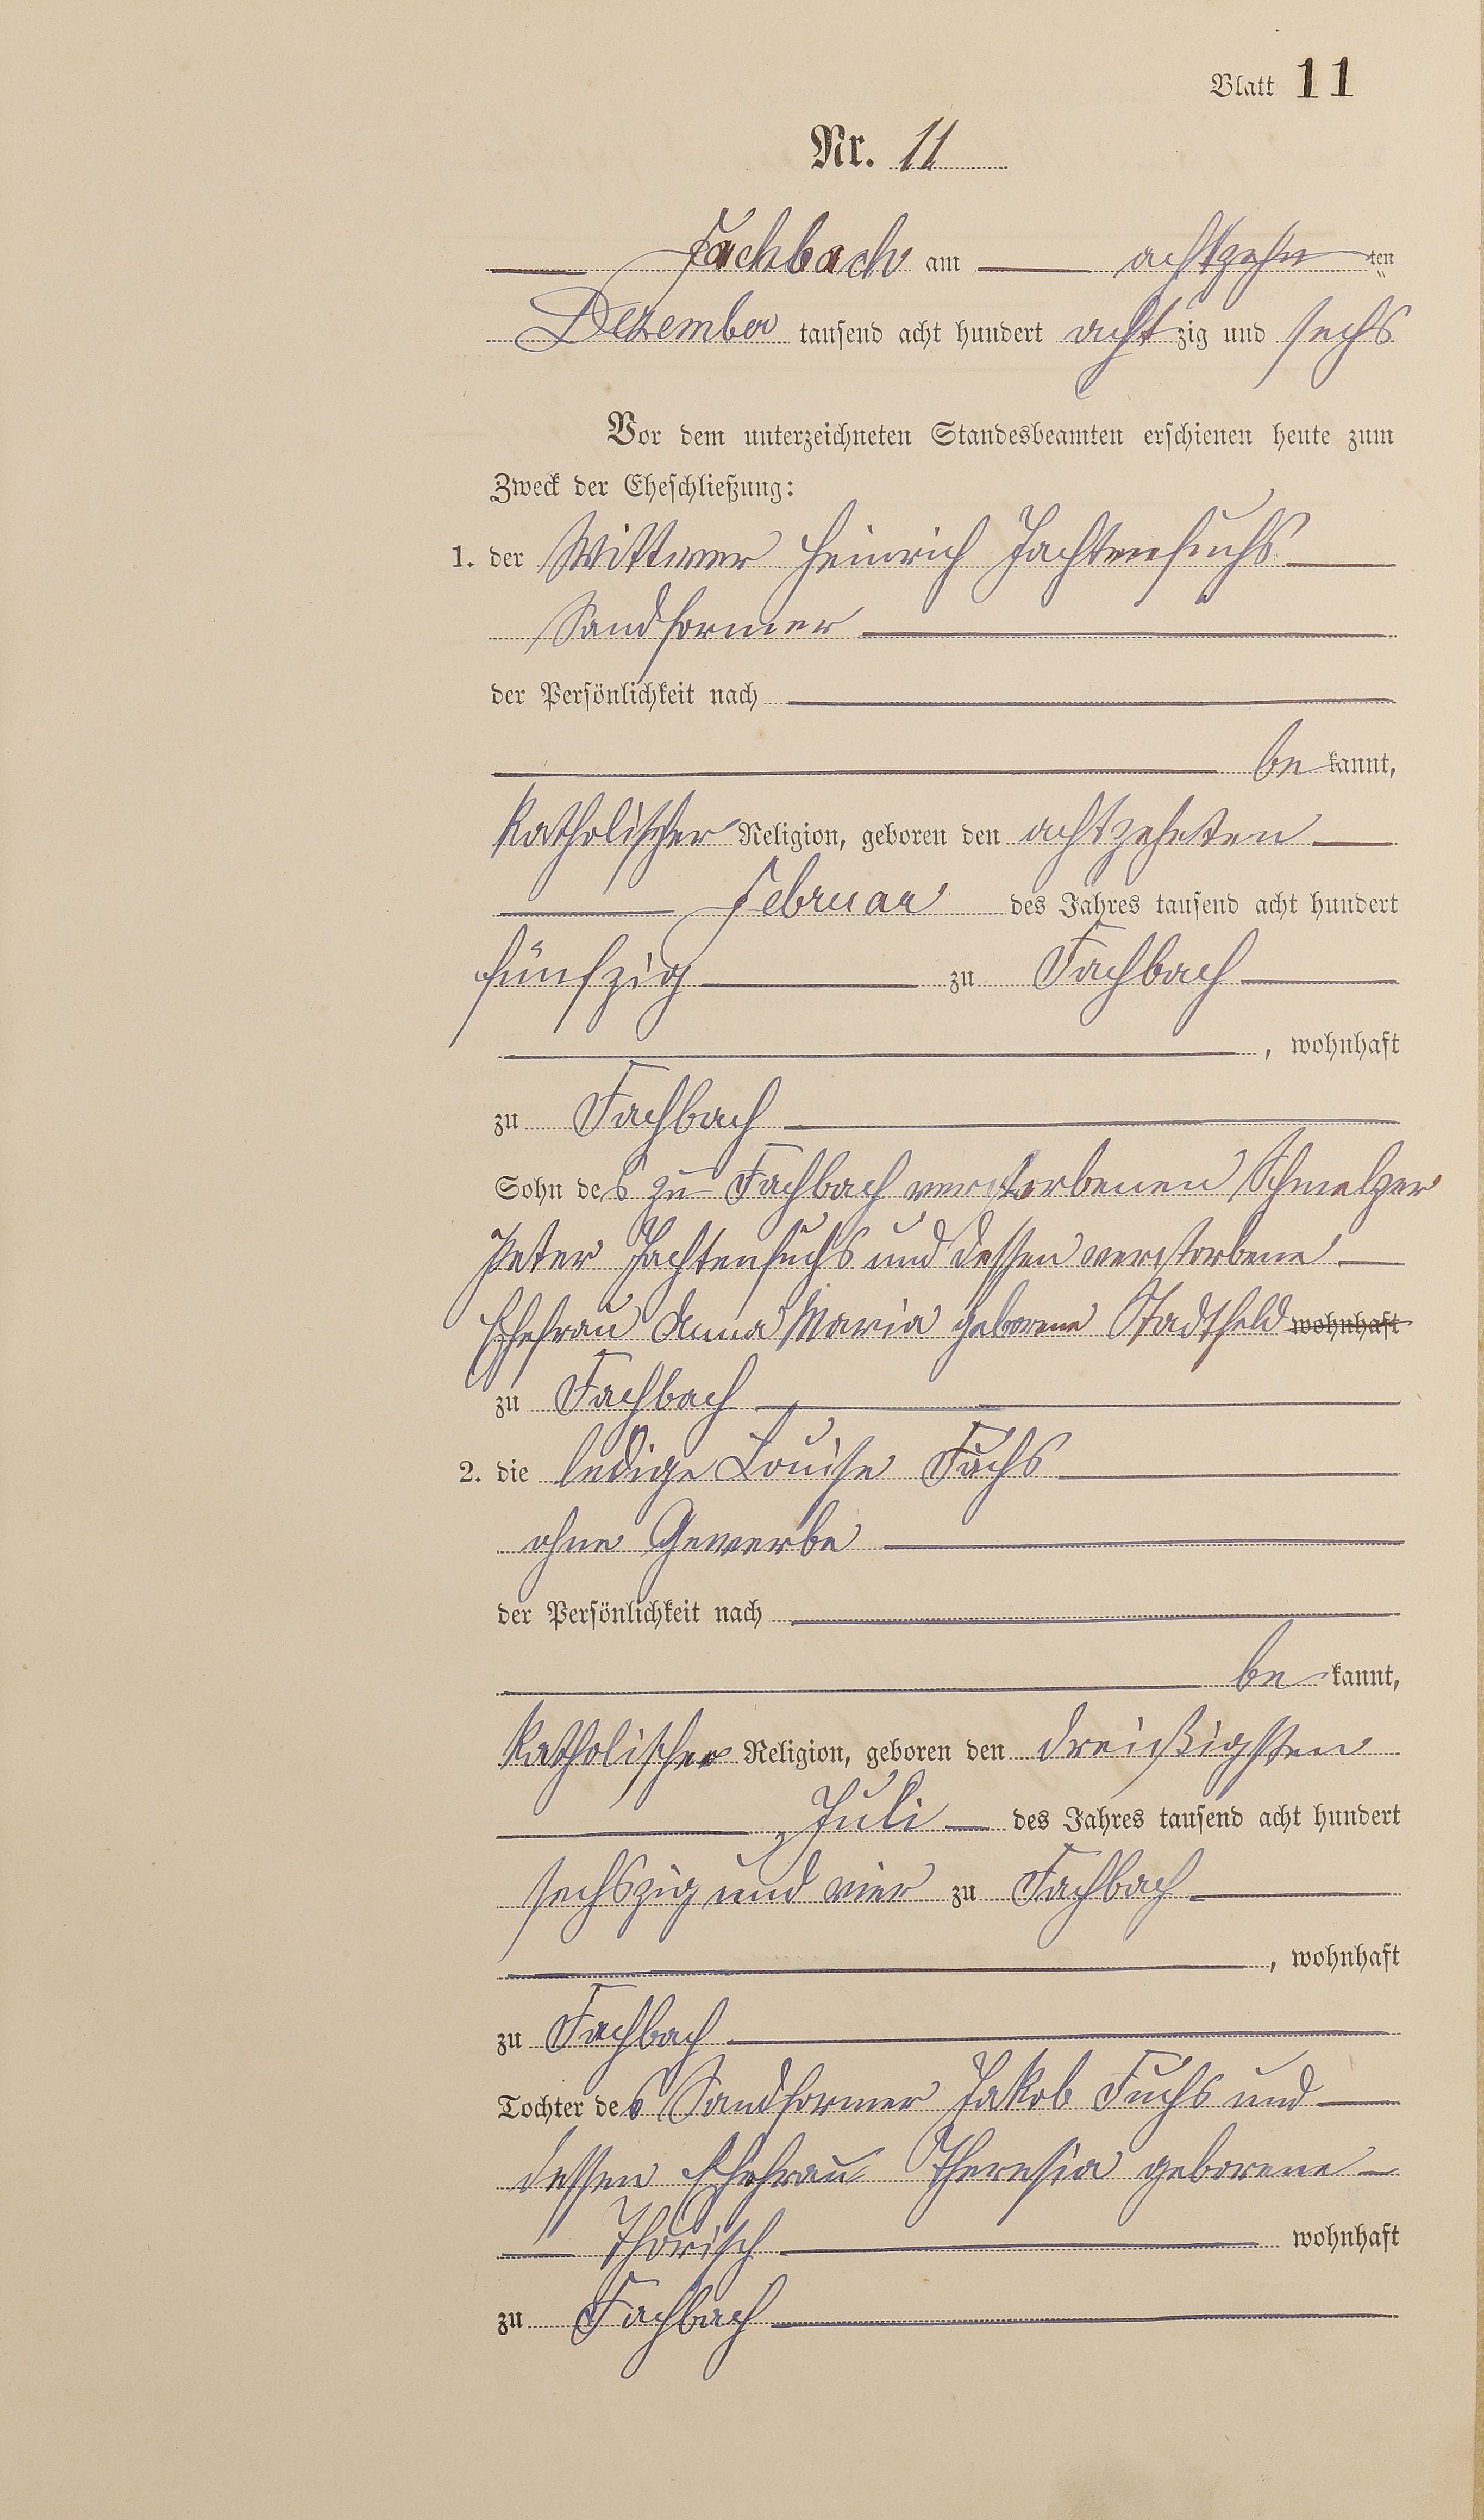 Blatt 11
Nr. 11
Fachbach am achtzehn ten
Dezember tausend acht hundert achtzig und sechs
Vor dem unterzeichneten Standesbeamten erschienen heute zum
Zweck der Eheschließung:
1. der Wittwer Heinrich Jachtenfuchs
Sandformer
der Persönlichkeit nach
be kannt,
katholischer Religion, geboren den achtzehnten
Februar des Jahres tausend acht hundert
fünfzig zu Fachbach
, wohnhaft
zu Fachbach
Sohn des zu Fachbach verstorbenen Schmelzer
Peter Jachtenfuchs und dessen verstorbene
Ehefrau Anna Maria geborene Stadtfeld wohnhaft
zu Fachbach
2. die ledige Louise Fuchs
ohne Gewerbe
der Persönlichkeit nach
be kannt,
katholischer Religion, geboren den dreißigsten
Juli des Jahres tausend acht hundert
sechszig und vier zu Fachbach
, wohnhaft
zu Fachbach
Tochter des Sandformer Jakob Fuchs und
dessen Ehefrau Theresia geborene
Thorisch wohnhaft
zu Fachbach